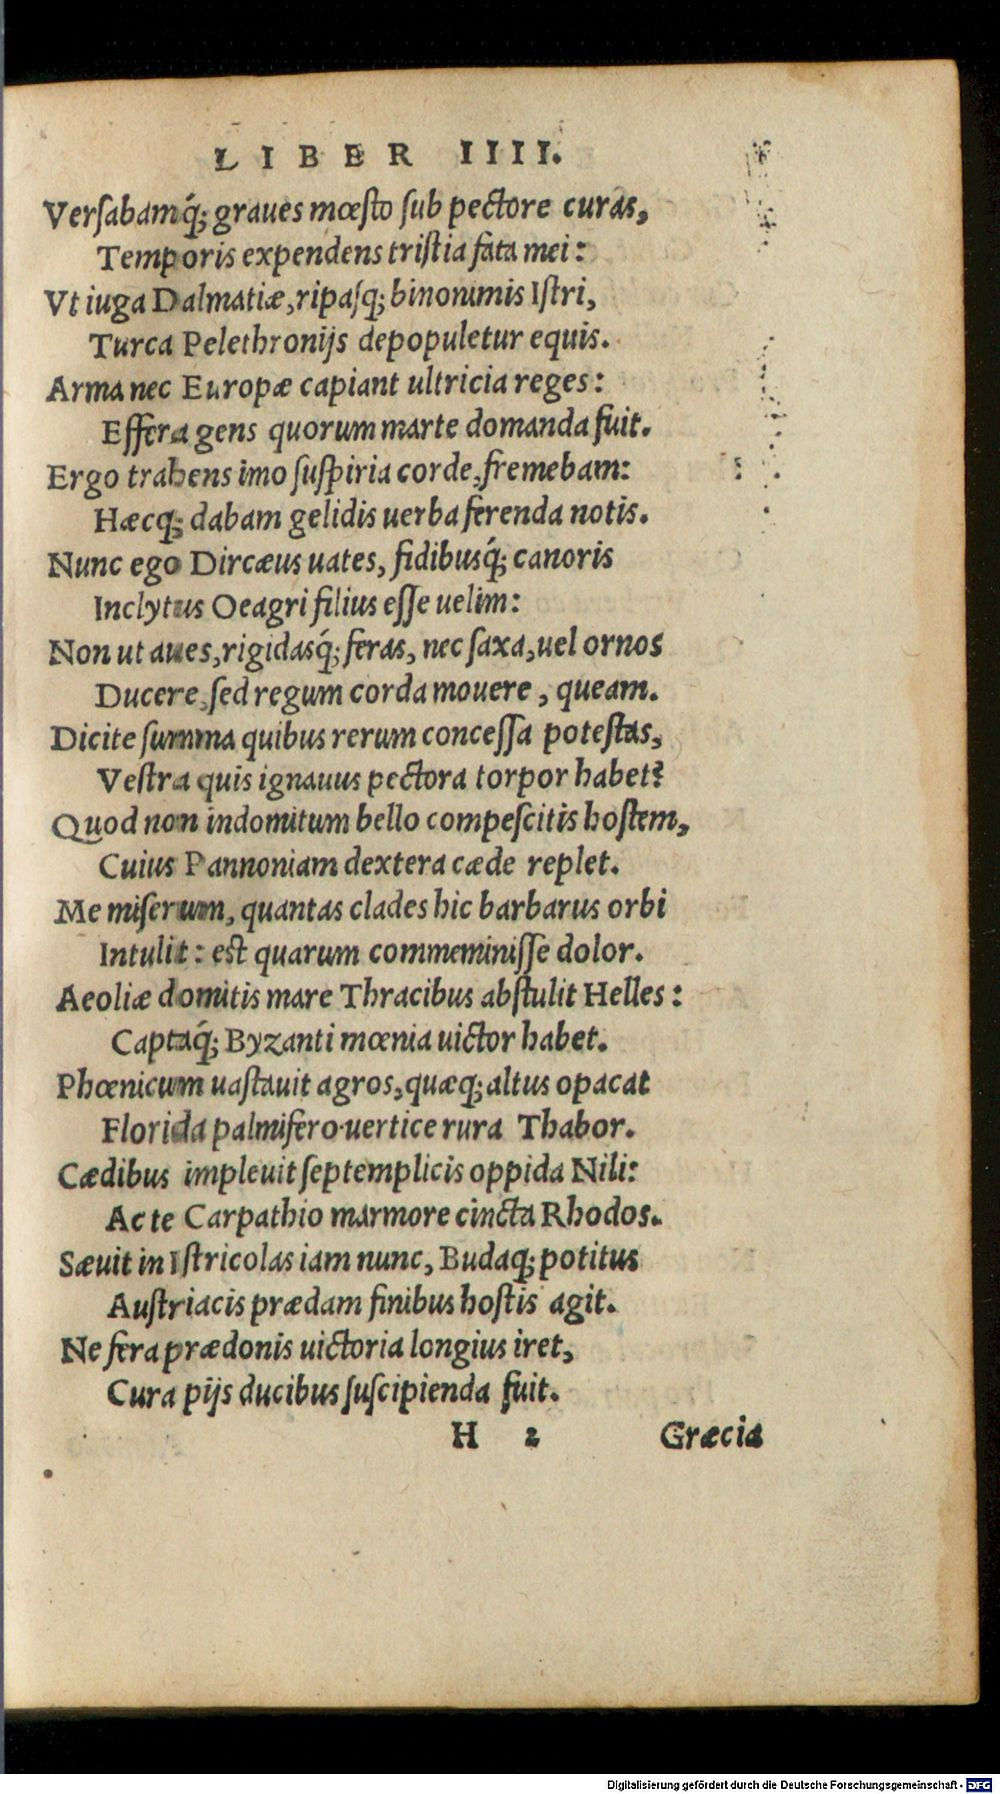 LIBER IIII.
Versabamq́; graues mœsto sub pectore curas,
Temporis expendens tristia fata mei:
Vt iuga Dalmatiæ, ripasq; binominis Istri,
Turca Pelethronijs depopuletur equis.
Arma nec Europæ capiant ultricia reges:
Effera gens quorum marte domanda fuit.
Ergo trahens imo suspiria corde, fremebam:
Hæcq; dabam gelidis uerba ferenda notis.
Nunc ego Dircæus uates, fidibusq́; canoris
Inclytus Oeagri filius esse uelim:
Non ut aues, rigidasq́; feras, nec saxa, uel ornos
Ducere, sed regum corda mouere, queam.
Dicite summa quibus rerum concessa potestas,
Vestra quis ignauus pectora torpor habet?
Quod non indomitum bello compescitis hostem,
Cuius Pannoniam dextera cæde replet.
Me miserum, quantas clades hic barbarus orbi
Intulit: est quarum commeminisse dolor.
Aeoliæ domitis mare Thracibus abstulit Helles:
Captaq́; Byzanti mœnia uictor habet.
Phœnicum uastauit agros, quæq; altus opacat
Florida palmifero uertice rura Thabor.
Cædibus impleuit septemplicis oppida Nili:
Ac te Carpathio marmore cincta Rhodos.
Sæuit in Istricolas iam nunc, Budaq; potitus
Austriacis prædam finibus hostis agit.
Ne fera prædonis uictoria longius iret,
Cura pijs ducibus suscipienda fuit.
H 2 Græcia
Digitalisierung gefördert durch die Deutsche Forschungsgemeinschaft - DFG